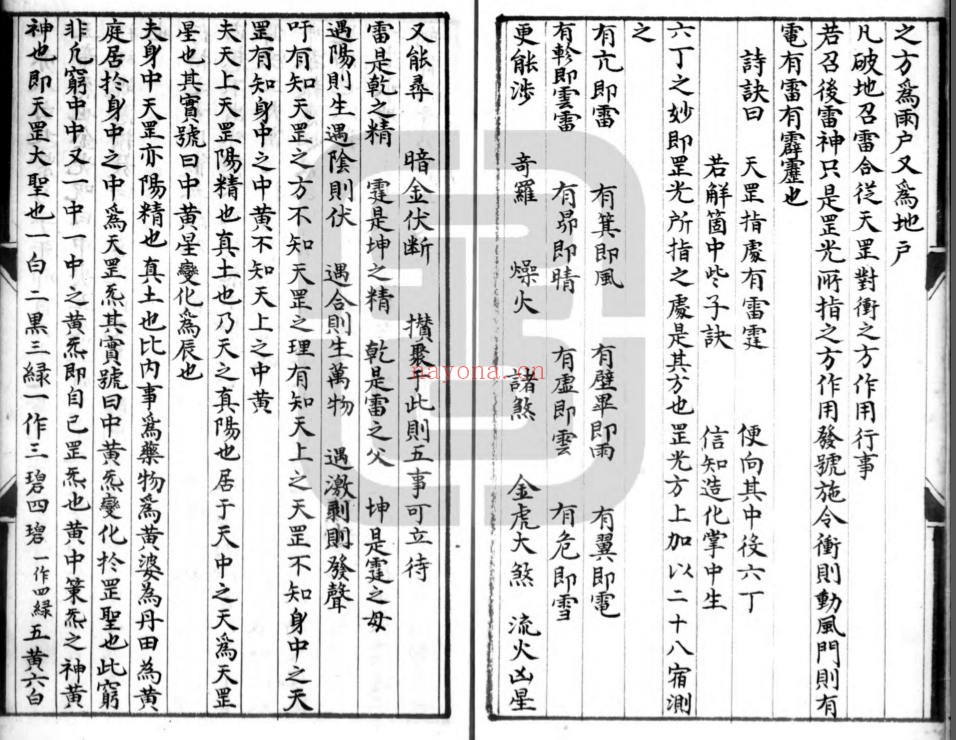 之方爲雨户又爲地户
凡破地召雷合從天罡對衝之方作用行事
若召後雷神只是罡光所指之方作用發號施令衝則動風門則有
電有雷有霹靂也
詩訣曰 天罡指處有雷霆 便向其中役六丁
若解箇中些子訣 信知造化掌中生
六丁之妙即罡光所指之處是其方也罡光方上加以二十八宿測
之
有亢即雷 有箕即風 有壁畢即雨 有翼即電
有軫即雲雷 有昴即晴 有虚即雲 有危即雪
更能涉 奇羅 燥火 諸煞 金虎大煞 流火凶星
又能尋 暗金伏断 攅聚于此則五事可立待
雷是乾之精 霆是坤之精 乾是雷之父 坤是霆之母
遇陽則生遇陰則伏 遇合則生萬物 遇激剥則發聲
吁有知天罡之方不知天罡之理有知天上之天罡不知身中之天
罡有知身中之中黄不知天上之中黄
夫天上天罡陽精也真土也乃天之真陽也居于天中之天爲天罡
星也其實號曰中黄星變化爲辰也
夫身中天罡亦陽精也真土也比内事爲藥物爲黄婆為丹田為黄
庭居於身中之中爲天罡炁其實號曰中黄炁變化於罡聖也此窮
非凢窮中中又一中一中之黄炁即自已罡炁也黄中策炁之神黄
神也即天罡大聖也一白 二黒三緑一作三碧四碧一作四緑五黄六白
nayona.cn